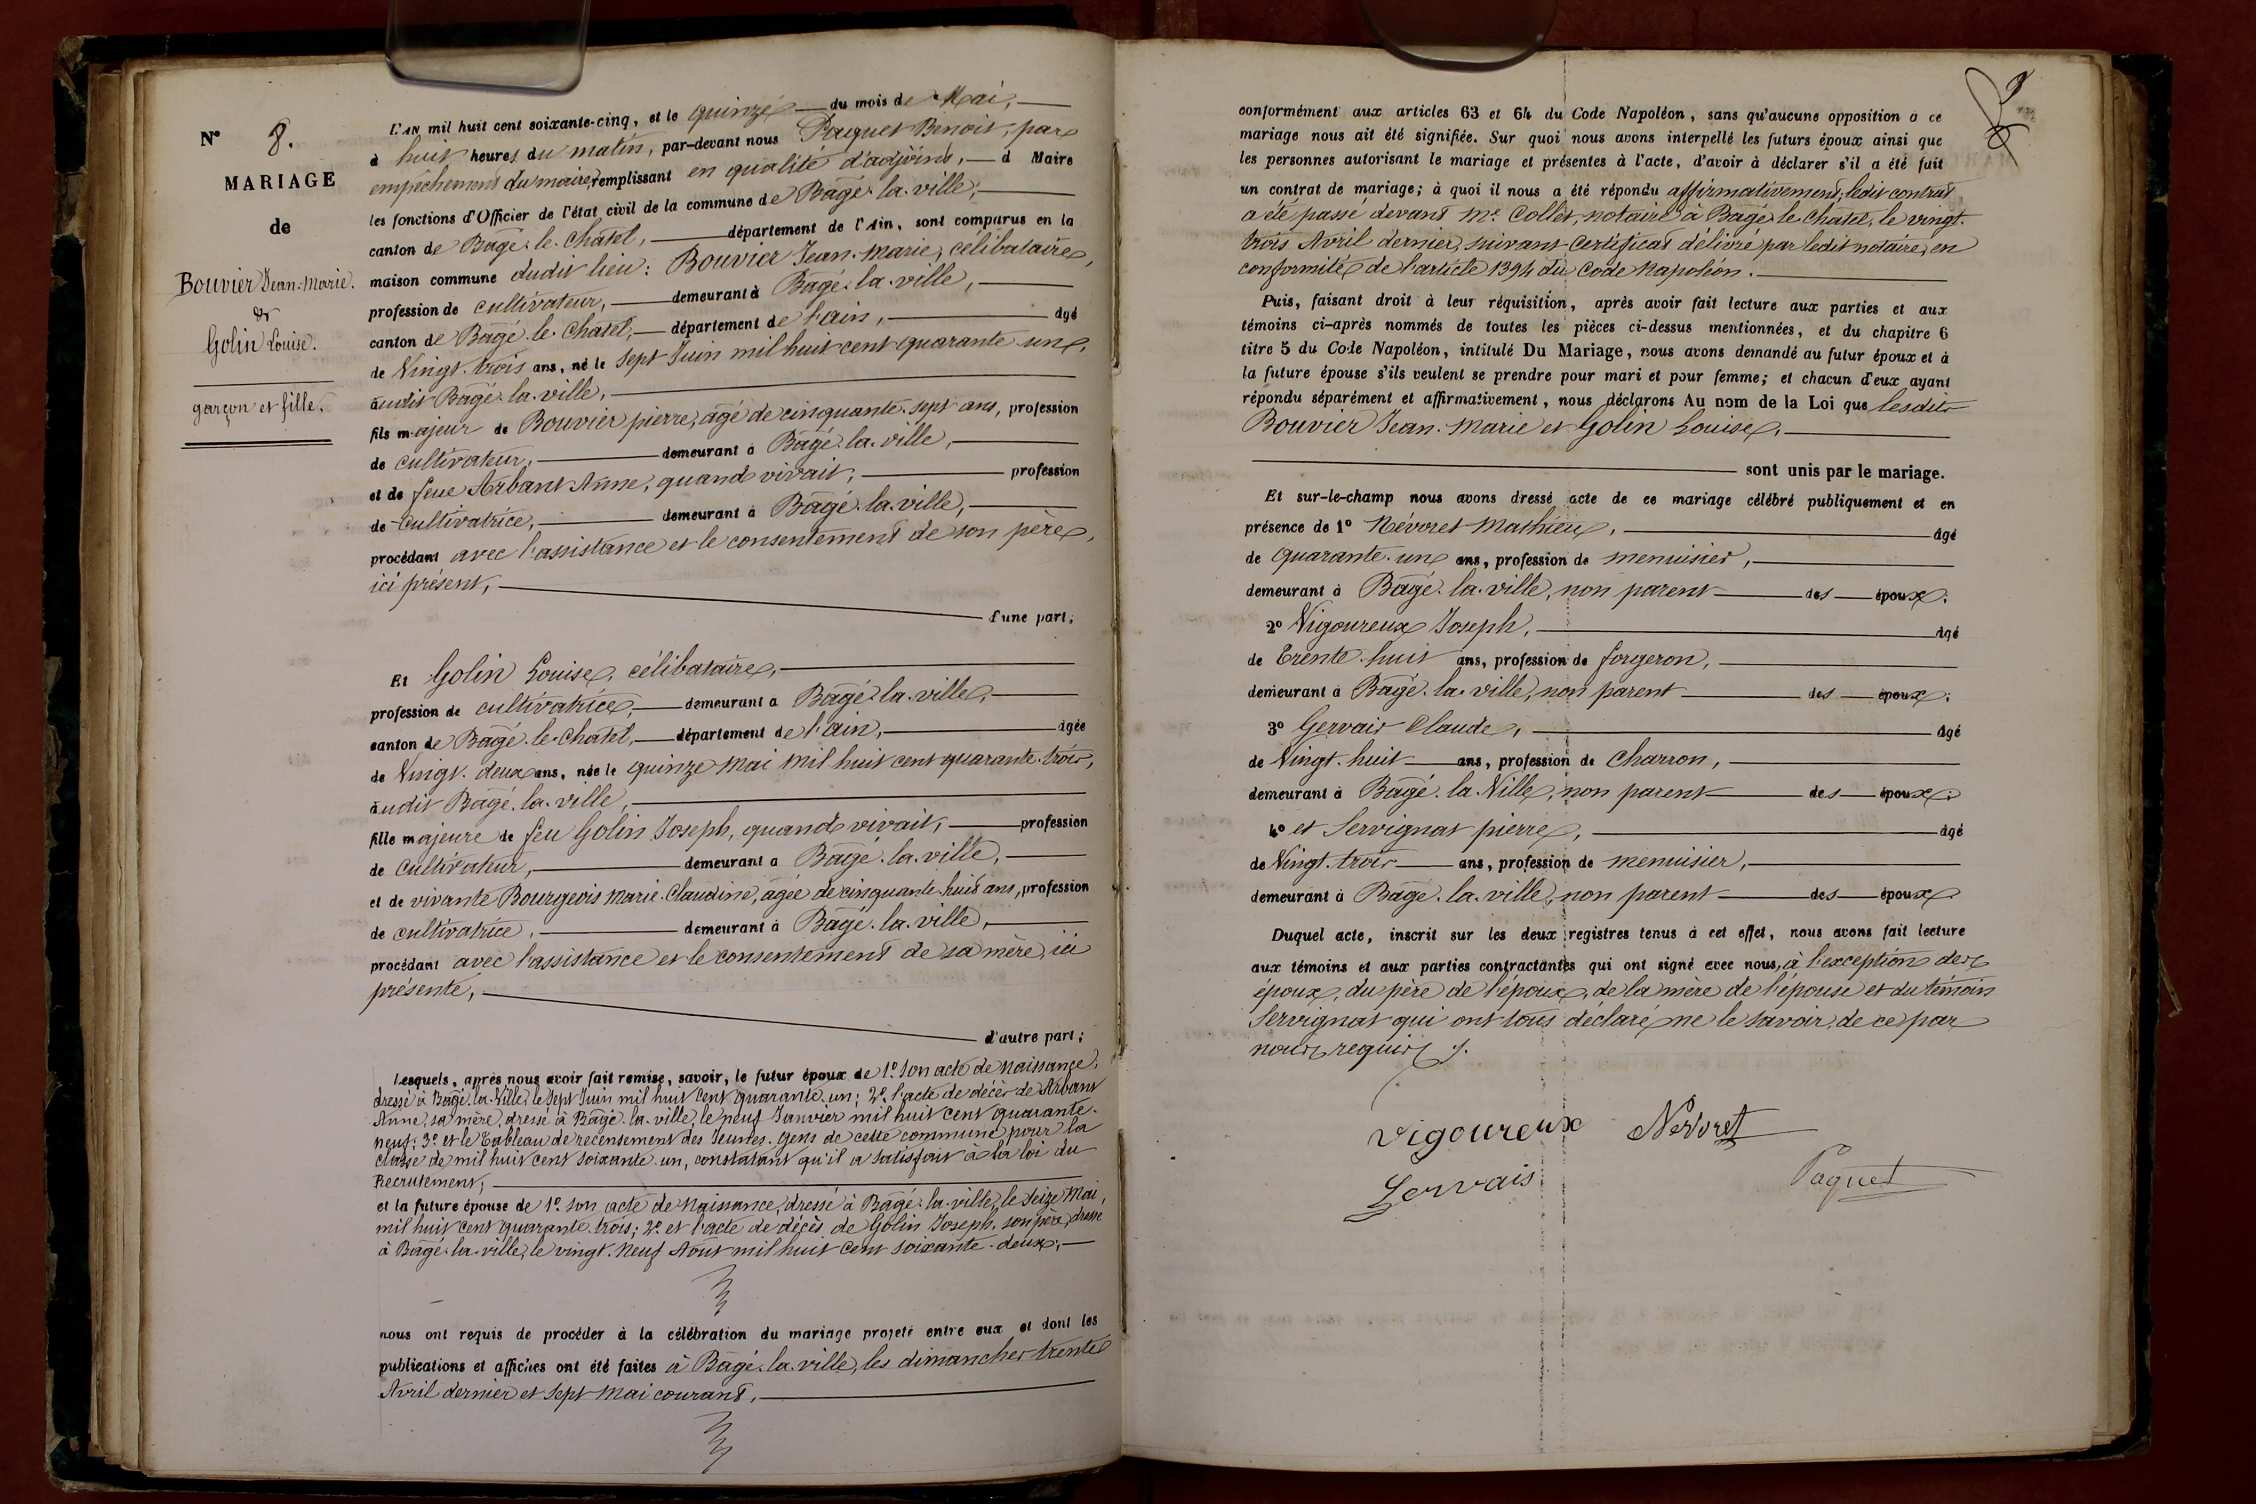 N° 8.
MARIAGE
de
Bouvier Jean-Marie.
et
Golin Louise.
garçon et fille.
L'AN mil huit cent soixante-cinq, et le quinze du mois de Mai,
à huit heures du matin, par-devant nous Paquet Benoit, par
empêchement du maire, remplissant en qualité d'adjoint, d Maire
les fonctions d'Officier de l'état civil de la commune de Bâgé-la-ville,
canton de Bâgé-le-Châtel, département de l'Ain, sont comparus en la
maison commune dudit lieu: Bouvier Jean-Marie, célibataire,
profession de cultivateur, demeurant à Bâgé-la-ville,
canton de Bâgé-le-Chatel, département de l'ain, âgé
de Vingt-trois ans, né le sept Juin mil huit cent quarante-un,
audit Bâgé-la-ville,
fils majeur de Bouvier pierre, âgé de cinquante-sept ans, profession
de cultivateur, demeurant à Bâgé-la-ville,
et de feue Arbant Anne, quand vivait, profession
de cultivatrice, demeurant à Bâgé-la-ville,
procédant avec l'assistance et le consentement de son père,
ici présent,
d'une part;
Et Golin Louise, célibataire,
profession de cultivatrice, demeurant à Bâgé-la-ville,
canton de Bâgé-le-Châtel, département de l'ain, âgée
de Vingt-deux ans, née le quinze mai mil huit cent quarante-trois,
audit Bâgé-la-ville,
fille majeure de feu Golin Joseph, quand vivait, profession
de Cultivateur, demeurant à Bâgé-la-ville,
et de vivante Bourgeois Marie-Claudine, âgée de cinquante-huit ans, profession
de cultivatrice, demeurant à Bâgé-la-ville,
procédant avec l'assistance et le consentement de sa mère, ici
présente,
d'autre part;
Lesquels, après nous avoir fait remise, savoir, le futur époux de 1° son acte de Naissance,
dressé à Bâgé-la-Ville, le sept Juin mil huit cent quarante-un; 2° l'acte de décès de Arbant
Anne, sa mère, dressé à Bâgé-la-ville, le neuf Janvier mil huit cent quarante-
neuf; 3° et le Tableau de recensement des Jeunes-gens de cette commune pour la
classe de mil huit cent soixante-un, constatant qu'il a satisfait à la loi du
Recrutement;
et la future épouse de 1° son acte de Naissance, dressé à Bâgé-la-ville, le seize Mai,
mil huit cent quarante-trois; 2° et l'acte de décès de Golin Joseph, son père, dressé
à Bâgé-la-ville, le vingt-neuf Août mil huit cent soixante-deux;
nous ont requis de procéder à la célébration du mariage projeté entre eux et dont les
publications et affiches ont été faites à Bâgé-la-ville, les dimanches trente
Avril dernier et sept Mai courant,
conformément aux articles 63 et 64 du Code Napoléon, sans qu'aucune opposition à ce
mariage nous ait été signifiée. Sur quoi nous avons interpellé les futurs époux ainsi que
les personnes autorisant le mariage et présentes à l'acte, d'avoir à déclarer s'il a été fait
un contrat de mariage; à quoi il nous a été répondu affirmativement, ledit contrat
a été passé devant Me Collet, notaire à Bâgé-le-Châtel, le vingt-
trois Avril dernier, suivant certificat délivré par ledit notaire, en
conformité de l'article 1394 du Code Napoléon.
Puis, faisant droit à leur réquisition, après avoir fait lecture aux parties et aux
témoins ci-après nommés de toutes les pièces ci-dessus mentionnées, et du chapitre 6
titre 5 du Code Napoléon, intitulé Du Mariage, nous avons demandé au futur époux et à
la future épouse s'ils veulent se prendre pour mari et pour femme; et chacun d'eux ayant
répondu séparément et affirmativement, nous déclarons Au nom de la Loi que lesdits
Bouvier Jean-Marie et Golin Louise,
sont unis par le mariage.
Et sur-le-champ nous avons dressé acte de ce mariage célébré publiquement et en
présence de 1° Névoret Mathieu, âgé
de quarante-un ans, profession de menuisier,
demeurant à Bâgé-la-ville, non parent des époux.
2° Vigoureux Joseph, âgé
de Trente-huit ans, profession de forgeron,
demeurant à Bâgé-la-ville, non parent des époux.
3° Gervais Claude, âgé
de Vingt-huit ans, profession de Charron,
demeurant à Bâgé-la-Ville, non parent des époux.
4° et Servignat pierre, âgé
de Vingt-trois ans, profession de menuisier,
demeurant à Bâgé-la-ville, non parent des époux
Duquel acte, inscrit sur les deux registres tenus à cet effet, nous avons fait lecture
aux témoins et aux parties contractantes qui ont signé avec nous, à l'exception des
époux, du père de l'époux, de la mère de l'épouse et du témoin
Servignat qui ont tous déclaré ne le savoir, de ce par
nous requis.
Vigoureux Nevoret
Gervais Paquet